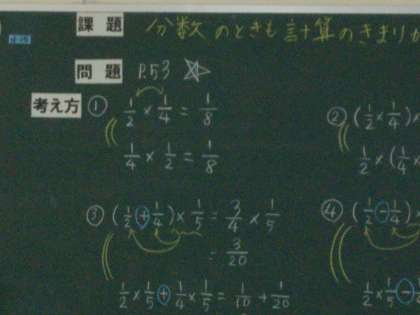 課題 分数のときも計算のきまりが
問題 P.53 ☆
考え方 ① 1/2 × 1/4 = 1/8
1/4 × 1/2 = 1/8
② (1/2 × 1/4) ×
1/2 × (1/4 ×
③ (1/2 + 1/4) × 1/5 = 3/4 × 1/5
= 3/20
1/2 × 1/5 + 1/4 × 1/5 = 1/10 + 1/20
④ (1/2 - 1/4)
1/2 × 1/5 -